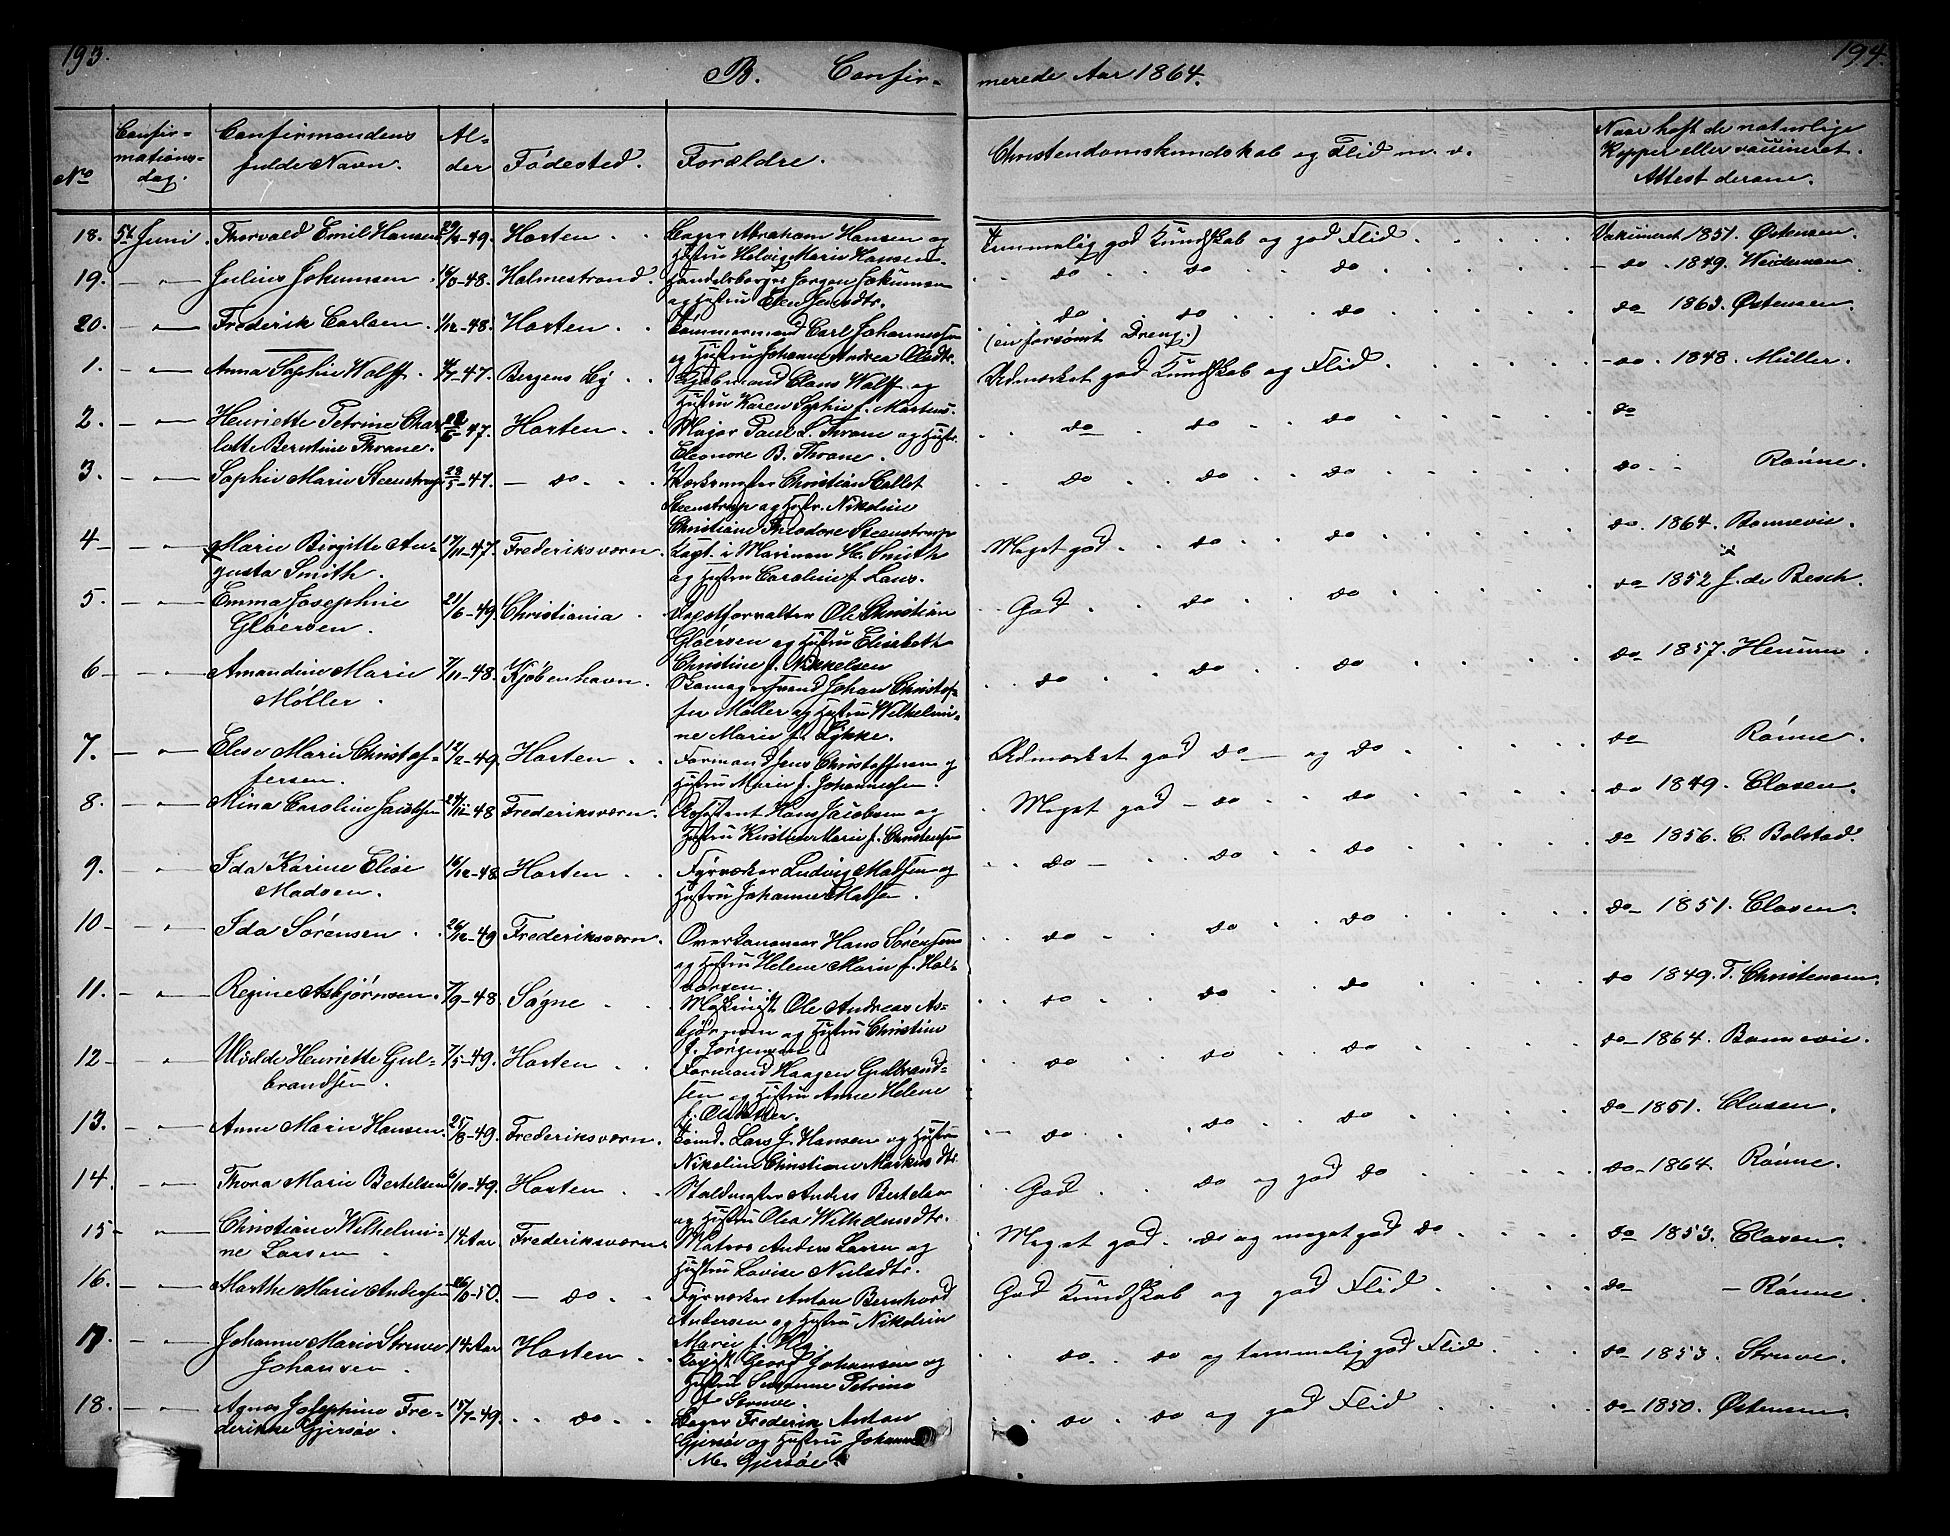 193.
B. Confir-
merede Aar 1864.
194.
No
Confir-
mations-
dag.
Confirmandens
fulde Navn.
Al-
der
Fødested.
Forældre.
Christendomskundskab og Flid m. v.
Naar haft de naturlige
Kopper eller vaccineret.
Attest derom.
18. 5te Juni. Thorvald Emil Hansen 49. Horten Bager Abraham Hansen og
Hustru Helvig Marie Hansen.
Temmelig god Kundskab og god Flid Vakcineret 1851. Østensen.
19. — " — Julius Jokumsen 48. Holmestrand. Handelsborger Jørgen Jokumsen
og Hustru Elen Jensdtr.
do do do do 1849. Weideman
20. — " — Frederik Carlsen. 1/12-48. Horten Tømmermand Carl Johannesen
og Hustru Johanne Andrea Olsdtr.
do do do do 1863. Østensen
(en forsømt Dreng.)
1. — " — Anna Sophie Wolff 47. Bergens By Kjøbmand Claus Wolff og
Hustru Karen Sophie f. Martens.
Udmærket god Kundskab og Flid do 1848 Müller.
2. — " — Henriette Petrine Char-
lotte Berntine Thrane. 47. Horten Major Paul L. Thrane og Hustr.
Eleonore B. Thrane.
do do do do
3. — " — Sophie Marie Steenstrup 28/5-47. — do Værksmester Christian Collet
Steenstrup og Hustr. Nikoline
Christiane Theodore Steenstrup
do do do do Rønne.
4 — " — Marie Birgitte Au-
gusta Smith. 17/11-47. Frederiksværn. Kapt. i Marinen H. Smith
og Hustru Caroline f. Laus.
Meget god do do do 1864. Bonnevie.
5. — " — Emma Josephine
Gløersen. 21/6-49. Christiania Proviantforvalter Ole Christian
Gløersen og Hustru Elisabeth
Christine f. Mikkelsen
God do do do 1852 J. de Besch.
6 — " — Amandine Marie
Møller 7/11-48. Kjøbenhavn. Skomagersvend Johan Christof-
fer Møller og Hustru Wilhelmi-
ne Marie f. Lykke.
do do do do 1857. Heuum
7. — " — Elise Marie Christof-
fersen. 12/2-49. Horten Formand Jens Christoffersen og
Hustru Marie f. Johannesen.
Udmærket god do — og do do Rønne.
8. — " — Mina Caroline Jacobsen 24/11-48 Frederiksværn. Assistent Hans Jacobsen og
Hustru Kirstine Marie f. Christensen
Meget god — do do do 1849. Clasen.
9. — " — Ida Karine Elise
Madsen. 16/12-48 Horten Fyrværker Ludvig Madsen og
Hustru Johanne Madsen.
do — do do do 1856. C. Bolstad.
10. — " — Ida Sørensen 26/12-49 Frederiksværn. Overkanoneer Hans Sørensen
og Hustru Helene Marie f. Hal-
vorsen.
do do do do 1851. Clasen.
11. — " — Regine Asbjørnsen. 7/9-48. Søgne Maskinist Ole Andreas As-
bjørnsen og Hustru Christine
f. Jørgensen
do do do do 1849. T. Christensen.
12 — " — Ulilde Henriette Gul-
brandsen 7/5-49. Horten Formand Haagen Gulbrand-
sen og Hustru Anne Helene
f. Olsdatter.
do do do do 1864. Bonnevie.
13. — " — Anne Marie Hansen. 25/8-49. Frederiksværn. Tømd. Lars J. Hansen og Hustru
Nikoline Christiane Markusdtr.
do do do do 1851. Clasen.
14. — " — Thora Marie Bertelsen 6/10-49. Horten Staldmester Anders Bertelsen
og Hustru Olea Wilhelmsdtr.
God do og god do do 1864. Rønne.
15 — " — Christiane Wilhelmi-
ne Larsen 14 Aar. Frederiksværn. Matros Anders Larsen og
Hustru Lovise Nielsdtr.
Meget god do og meget god do do 1853. Clasen.
16. — " — Marthe Marie Andersen 50. — do Fyrværker Anton Bernhard
Andersen og Hustru Nikoline
Marie f. Hy.
God Kundskab og god Flid do — Rønne.
17. — " — Johanne Marie Struve
Johansen 14 Aar Horten Georg Johansen og
Hustru Susanne Petrine
f. Struve.
do do og temmelig god Flid do 1853. Struve.
18. — " — Agnes Josephine Fre-
derikke Gjersøe. 15/7-49. do Bager Frederik Anton
Gjersøe og Hustru Johanne
M. Gjersøe.
do do og god Flid do 1850. Østensen.